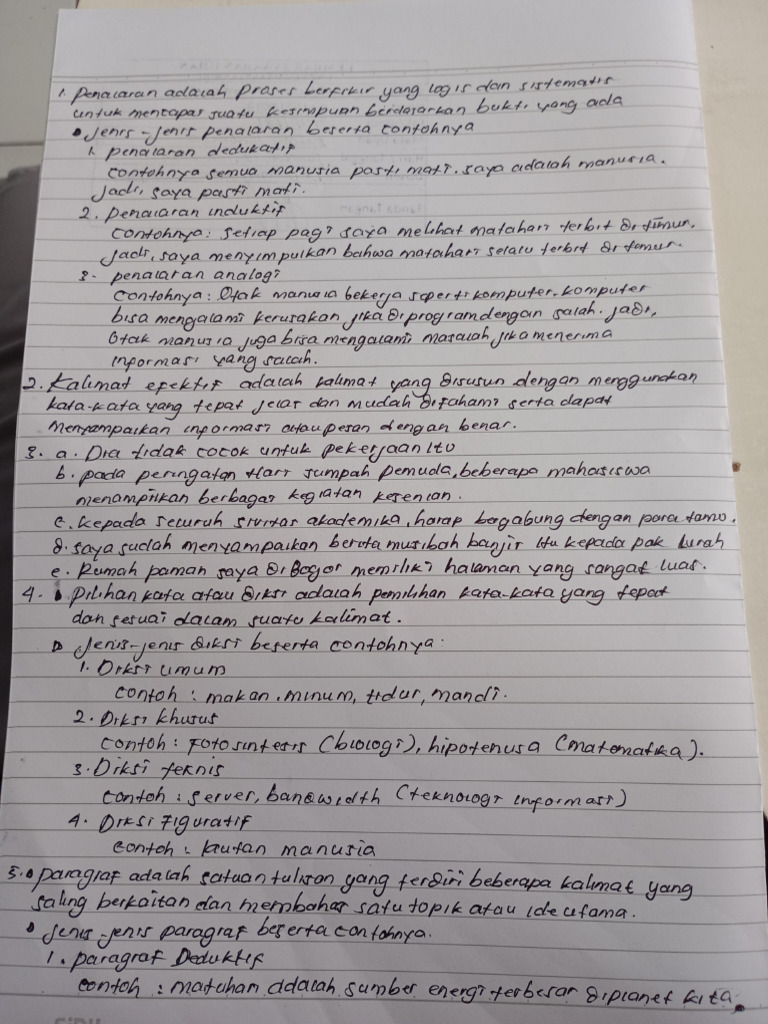 1. Penalaran adalah proses berfikir yang logis dan sistematis
untuk mencapai suatu kesimpulan berdasarkan bukti yang ada
• Jenis-jenis penalaran beserta contohnya
1. penalaran dedukatif
contohnya semua manusia pasti mati. saya adalah manusia.
Jadi, saya pasti mati.
2. Penalaran induktif
contohnya: setiap pagi saya melihat matahari terbit di timur.
Jadi, saya menyimpulkan bahwa matahari selalu terbit di timur.
3. penalaran analogi
contohnya: Otak manusia bekerja seperti komputer. komputer
bisa mengalami kerusakan jika di program dengan salah. jadi,
Otak manusia juga bisa mengalami masalah jika menerima
informasi yang salah.
2. Kalimat efektif adalah kalimat yang disusun dengan menggunakan
kata-kata yang tepat jelas dan mudah difahami serta dapat
menyampaikan informasi atau pesan dengan benar.
3. a. Dia tidak cocok untuk pekerjaan itu
b. pada peringatan Hari sumpah pemuda, beberapa mahasiswa
menampilkan berbagai kegiatan kesenian.
c. kepada seluruh sivitas akademika, harap bergabung dengan para tamu.
d. saya sudah menyampaikan berita musibah banjir itu kepada pak lurah
e. Rumah paman saya di Bogor memiliki halaman yang sangat luas.
4. • Pilihan kata atau diksi adalah pemilihan kata-kata yang tepat
dan sesuai dalam suatu kalimat.
• Jenis-jenis diksi beserta contohnya:
1. Diksi umum
contoh : makan. minum, tidur, mandi.
2. Diksi khusus
contoh : Fotosintesis (biologi), hipotenusa (matematika).
3. Diksi teknis
contoh : server, bandwidth (teknologi informasi)
4. Diksi Figuratif
contoh : lautan manusia
5. • paragraf adalah satuan tulisan yang terdiri beberapa kalimat yang
saling berkaitan dan membahas satu topik atau ide utama.
• Jenis-jenis paragraf beserta contohnya.
1. paragraf Deduktif
contoh : matahari adalah sumber energi terbesar diplanet kita.